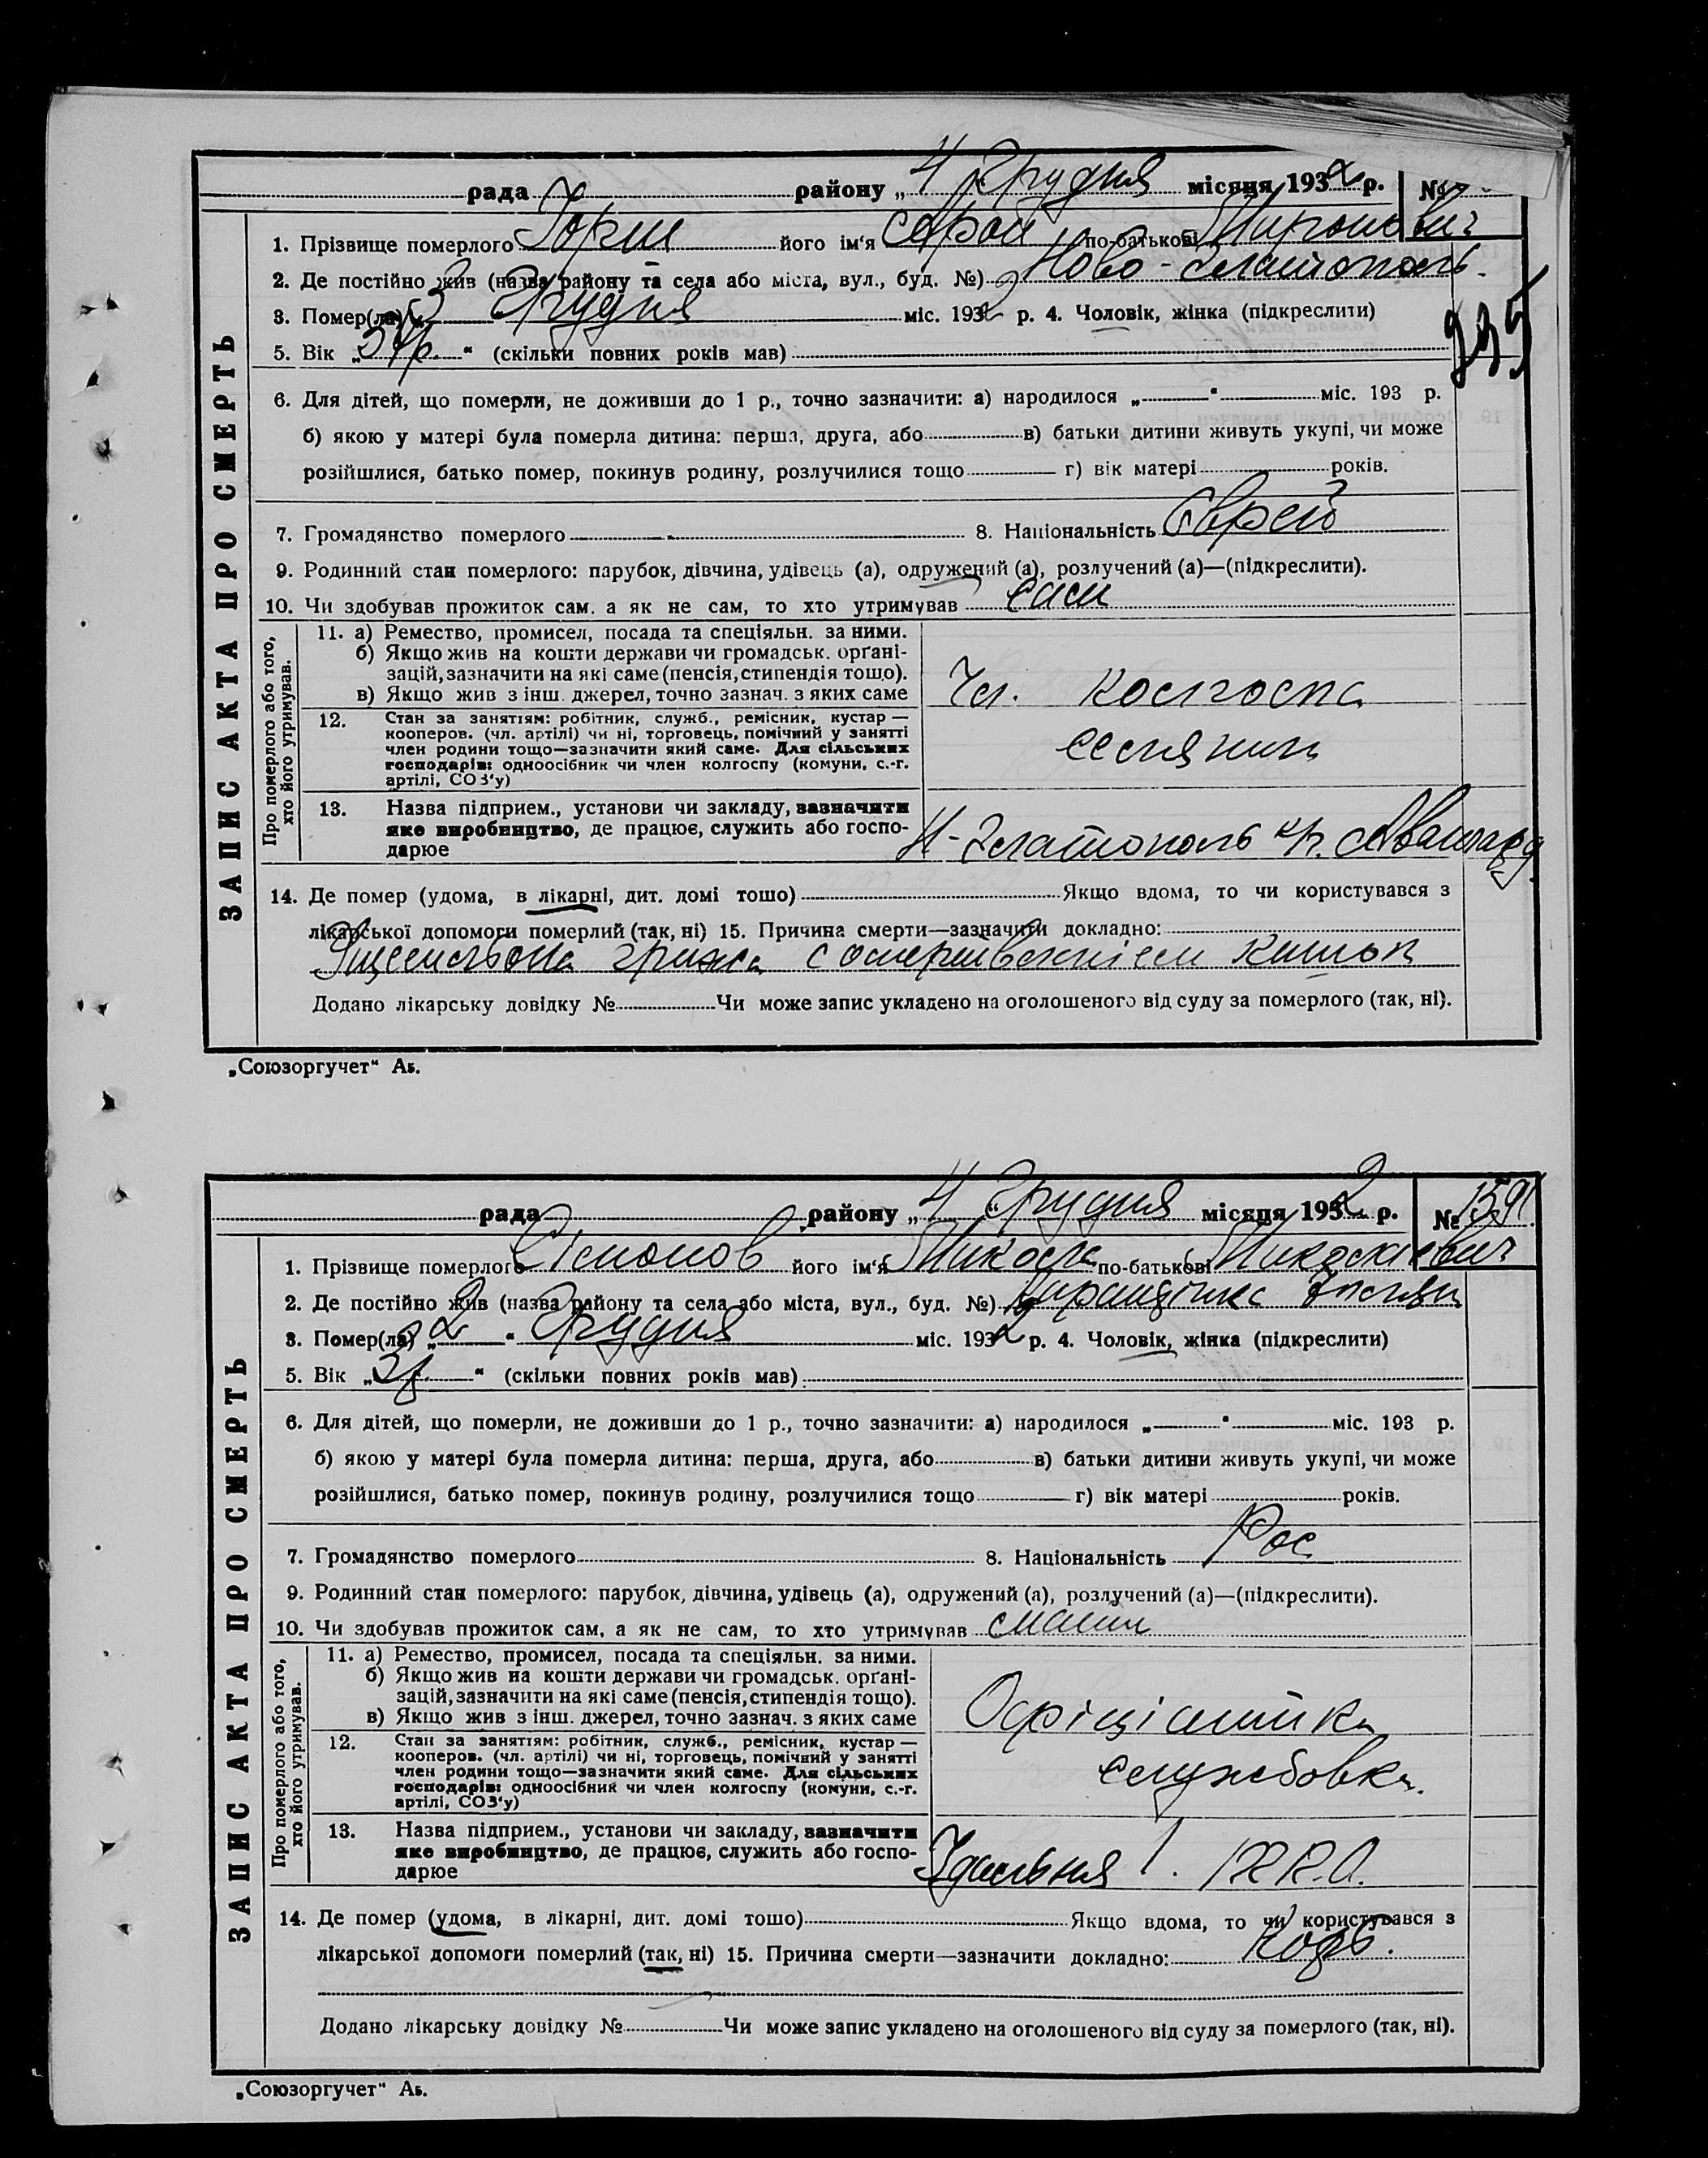 рада району „4“ Грудня місяця 1932 р. №
1. Прізвище померлого Горш його ім'я Арон по-батькові Миронович
2. Де постійно жив (назва району та села або міста, вул., буд. №) Ново-Златополь.
3. Помер(ла) „3“ Грудня міс. 1932 р. 4. Чоловік, жінка (підкреслити)
5. Вік „34р.“ (скільки повних років мав)
235
6. Для дітей, що померли, не доживши до 1 р., точно зазначити: а) народилося „ “ міс. 193 р.
б) якою у матері була померла дитина: перша, друга, або в) батьки дитини живуть укупі, чи може
розійшлися, батько помер, покинув родину, розлучилися тощо г) вік матері років.
7. Громадянство померлого 8. Національність Єврей
9. Родинний стан померлого: парубок, дівчина, удівець (а), одружений (а), розлучений (а)—(підкреслити).
10. Чи здобував прожиток сам, а як не сам, то хто утримував сам
ЗАПИС АКТА ПРО СМЕРТЬ
Про померлого або того, хто його утримував.
11. а) Ремество, промисел, посада та спеціяльн. за ними.
б) Якщо жив на кошти держави чи громадськ. орґані-
зацій, зазначити на які саме (пенсія, стипендія тощо).
в) Якщо жив з інш. джерел, точно зазнач. з яких саме
Чл. колгоспа
12. Стан за занятіям: робітник, служб., ремісник, кустар —
кооперов. (чл. артілі) чи ні, торговець, помічний у занятті
член родини тощо—зазначити який саме. Для сільських
господарів: одноосібник чи член колгоспу (комуни, с.-г.
артілі, СОЗ'у)
селянин
13. Назва підприєм., установи чи закладу, зазначити
яке виробництво, де працює, служить або госпо-
дарюе
Н-Златополь к/г. Авангард
14. Де помер (удома, в лікарні, дит. домі тощо) Якщо вдома, то чи користувався з
лікарської допомоги померлий (так, ні) 15. Причина смерти—зазначити докладно:
Ущемльона грижа с омертвенніем кишок
Додано лікарську довідку № Чи може запис укладено на оголошеного від суду за померлого (так, ні).
„Союзоргучет“ Аъ.
рада району „4“ Грудня місяця 1932 р. № 1591
1. Прізвище померлого Сімонов його ім'я Микола по-батькові Миколаєвич
2. Де постійно жив (назва району та села або міста, вул., буд. №)
3. Помер(ла) „2“ Грудня міс. 1932 р. 4. Чоловік, жінка (підкреслити)
5. Вік „3р.“ (скільки повних років мав)
6. Для дітей, що померли, не доживши до 1 р., точно зазначити: а) народилося „ “ міс. 193 р.
б) якою у матері була померла дитина: перша, друга, або в) батьки дитини живуть укупі, чи може
розійшлися, батько помер, покинув родину, розлучилися тощо г) вік матері років.
7. Громадянство померлого 8. Національність Рос
9. Родинний стан померлого: парубок, дівчина, удівець (а), одружений (а), розлучений (а)—(підкреслити).
10. Чи здобував прожиток сам, а як не сам, то хто утримував
ЗАПИС АКТА ПРО СМЕРТЬ
Про померлого або того, хто його утримував.
11. а) Ремество, промисел, посада та спеціяльн. за ними.
б) Якщо жив на кошти держави чи громадськ. орґані-
зацій, зазначити на які саме (пенсія, стипендія тощо).
в) Якщо жив з інш. джерел, точно зазнач. з яких саме
Офіціянтка
12. Стан за занятіям: робітник, служб., ремісник, кустар —
кооперов. (чл. артілі) чи ні, торговець, помічний у занятті
член родини тощо—зазначити який саме. Для сільських
господарів: одноосібник чи член колгоспу (комуни, с.-г.
артілі, СОЗ'у)
службовка.
13. Назва підприєм., установи чи закладу, зазначити
яке виробництво, де працює, служить або госпо-
дарюе
Їдальня
14. Де помер (удома, в лікарні, дит. домі тощо) Якщо вдома, то чи користувався з
лікарської допомоги померлий (так, ні) 15. Причина смерти—зазначити докладно: Корь.
Додано лікарську довідку № Чи може запис укладено на оголошеного від суду за померлого (так, ні).
„Союзоргучет“ Аъ.